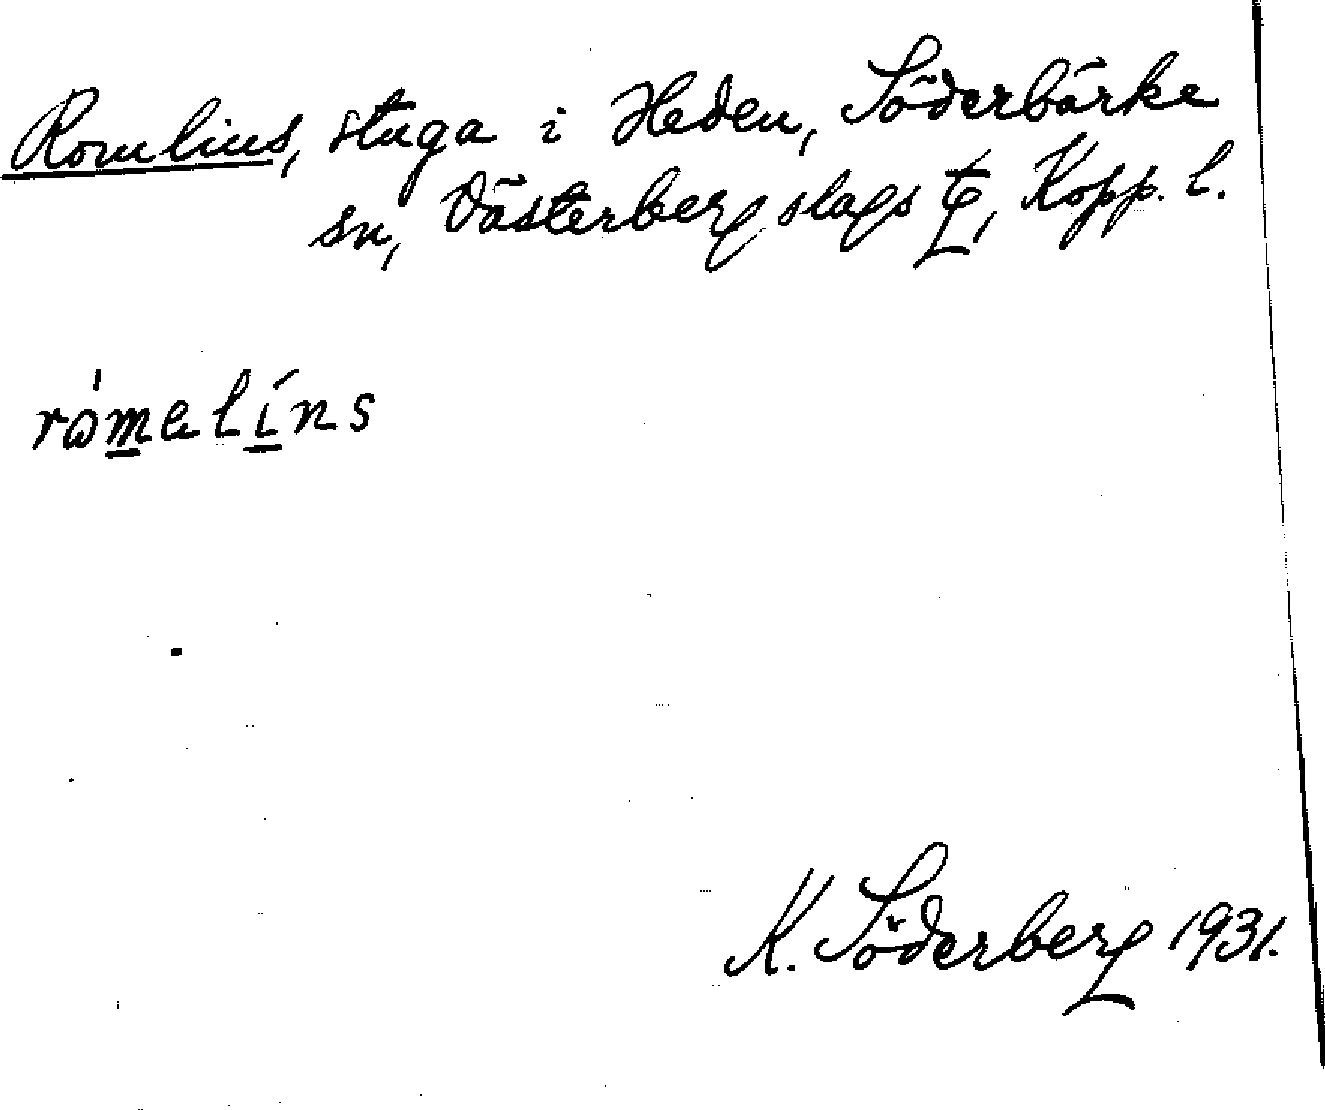 Romlins, stuga i Heden, Söderbärke
sn, Västerbergslags tg, Kopp. l.
ròmelíns
K. Söderberg 1931.